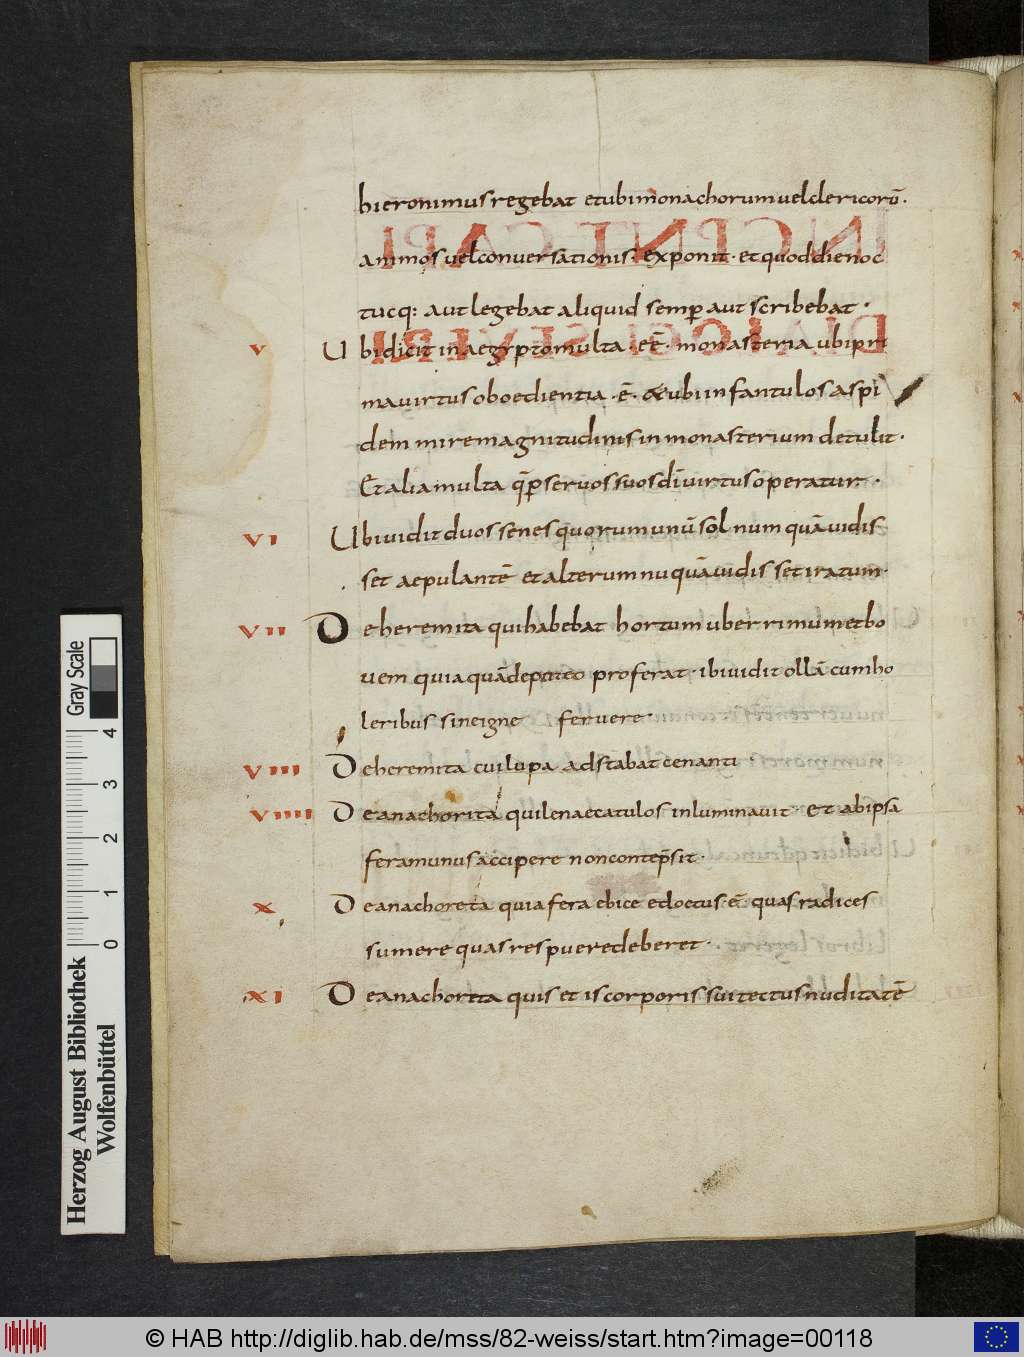 hieronimus regebat et ubi monachorum vel clericorū .
animos vel conversationis . exponit . et quod die noc
tu cq: aut legebat aliquid semp̄ aut scribebat .
V Ubi dicit in aegypto multa . eē . monasteria ubi pri
ma virtus oboedientia . ē . & ubi infantulos aspi
dem mire magnitudinis in monasterium detulit .
Et alia multa q̄ p servos suos dī virtus operatur .
VI Ubi vidit duos senes quorum unū sol numquā vidis
set aepulantē et alterum nuquā vidisset iratum .
VII De heremita qui habebat hortum uberrimum et bo
vem qui aquā de puteo proferat . ibi vidit ollā cum ho
leribus sine igne fervere .
VIII De heremita cui lupa adstabat cenanti .
VIIII De anachorita qui lenae catulos inluminavit . Et ab ipsa
fera munus accipere non contēpsit .
X De anachoreta qui a fera ebice edoctus . ē . quas radices
sumere quas respuere deberet .
XI De anachoreta qui set is corporis sui tectus nuditatē
INCIPIUNT CAPI
DIALOGI SEVERI
Herzog August Bibliothek
Wolfenbüttel
0 1 2 3 4
Gray Scale
© HAB http://diglib.hab.de/mss/82-weiss/start.htm?image=00118